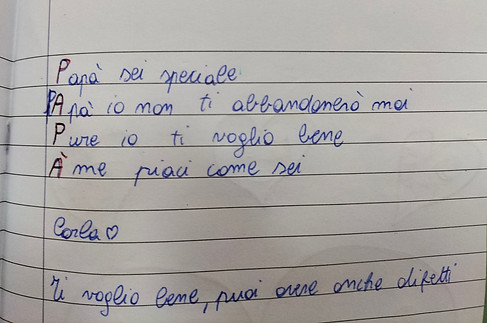 Papà sei speciale
PApà io non ti abbandonerò mai
Pure io ti voglio bene
À me piaci come sei
Carla ♡
Ti voglio bene, puoi avere anche difetti